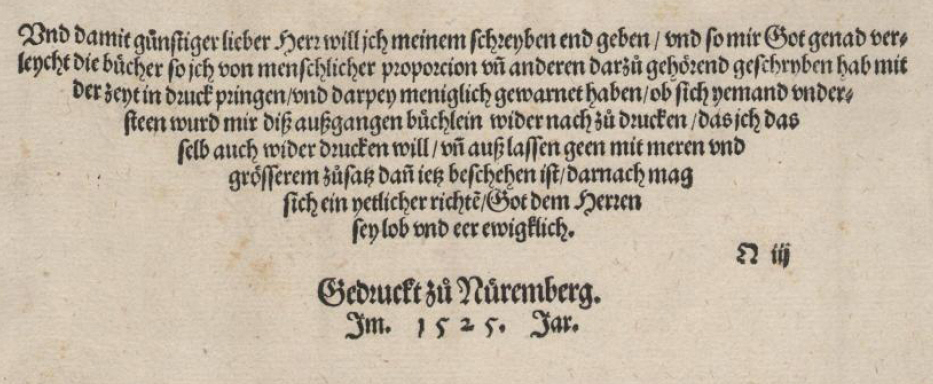 Vnd damit günstiger lieber Herr will jch meinem schreyben end geben / vnd so mir Got genad ver⸗
leycht die bücher so jch von menschlicher proporcion vñ anderen darzů gehörend geschryben hab mit
der zeyt in druck pringen/vnd darpey meniglich gewarnet haben/ob sich yemand vnder⸗
steen wurd mir diß außgangen büchlein wider nach zů drucken /das jch das
selb auch wider drucken will/vñ auß lassen geen mit meren vnd
grösserem zůsatz dañ ietz beschehen ist/darnach mag
sich ein yetlicher richtẽ/Got dem Herren
sey lob vnd eer ewigklich.
N iij
Gedruckt zů Nůremberg.
Im. 1525. Jar.